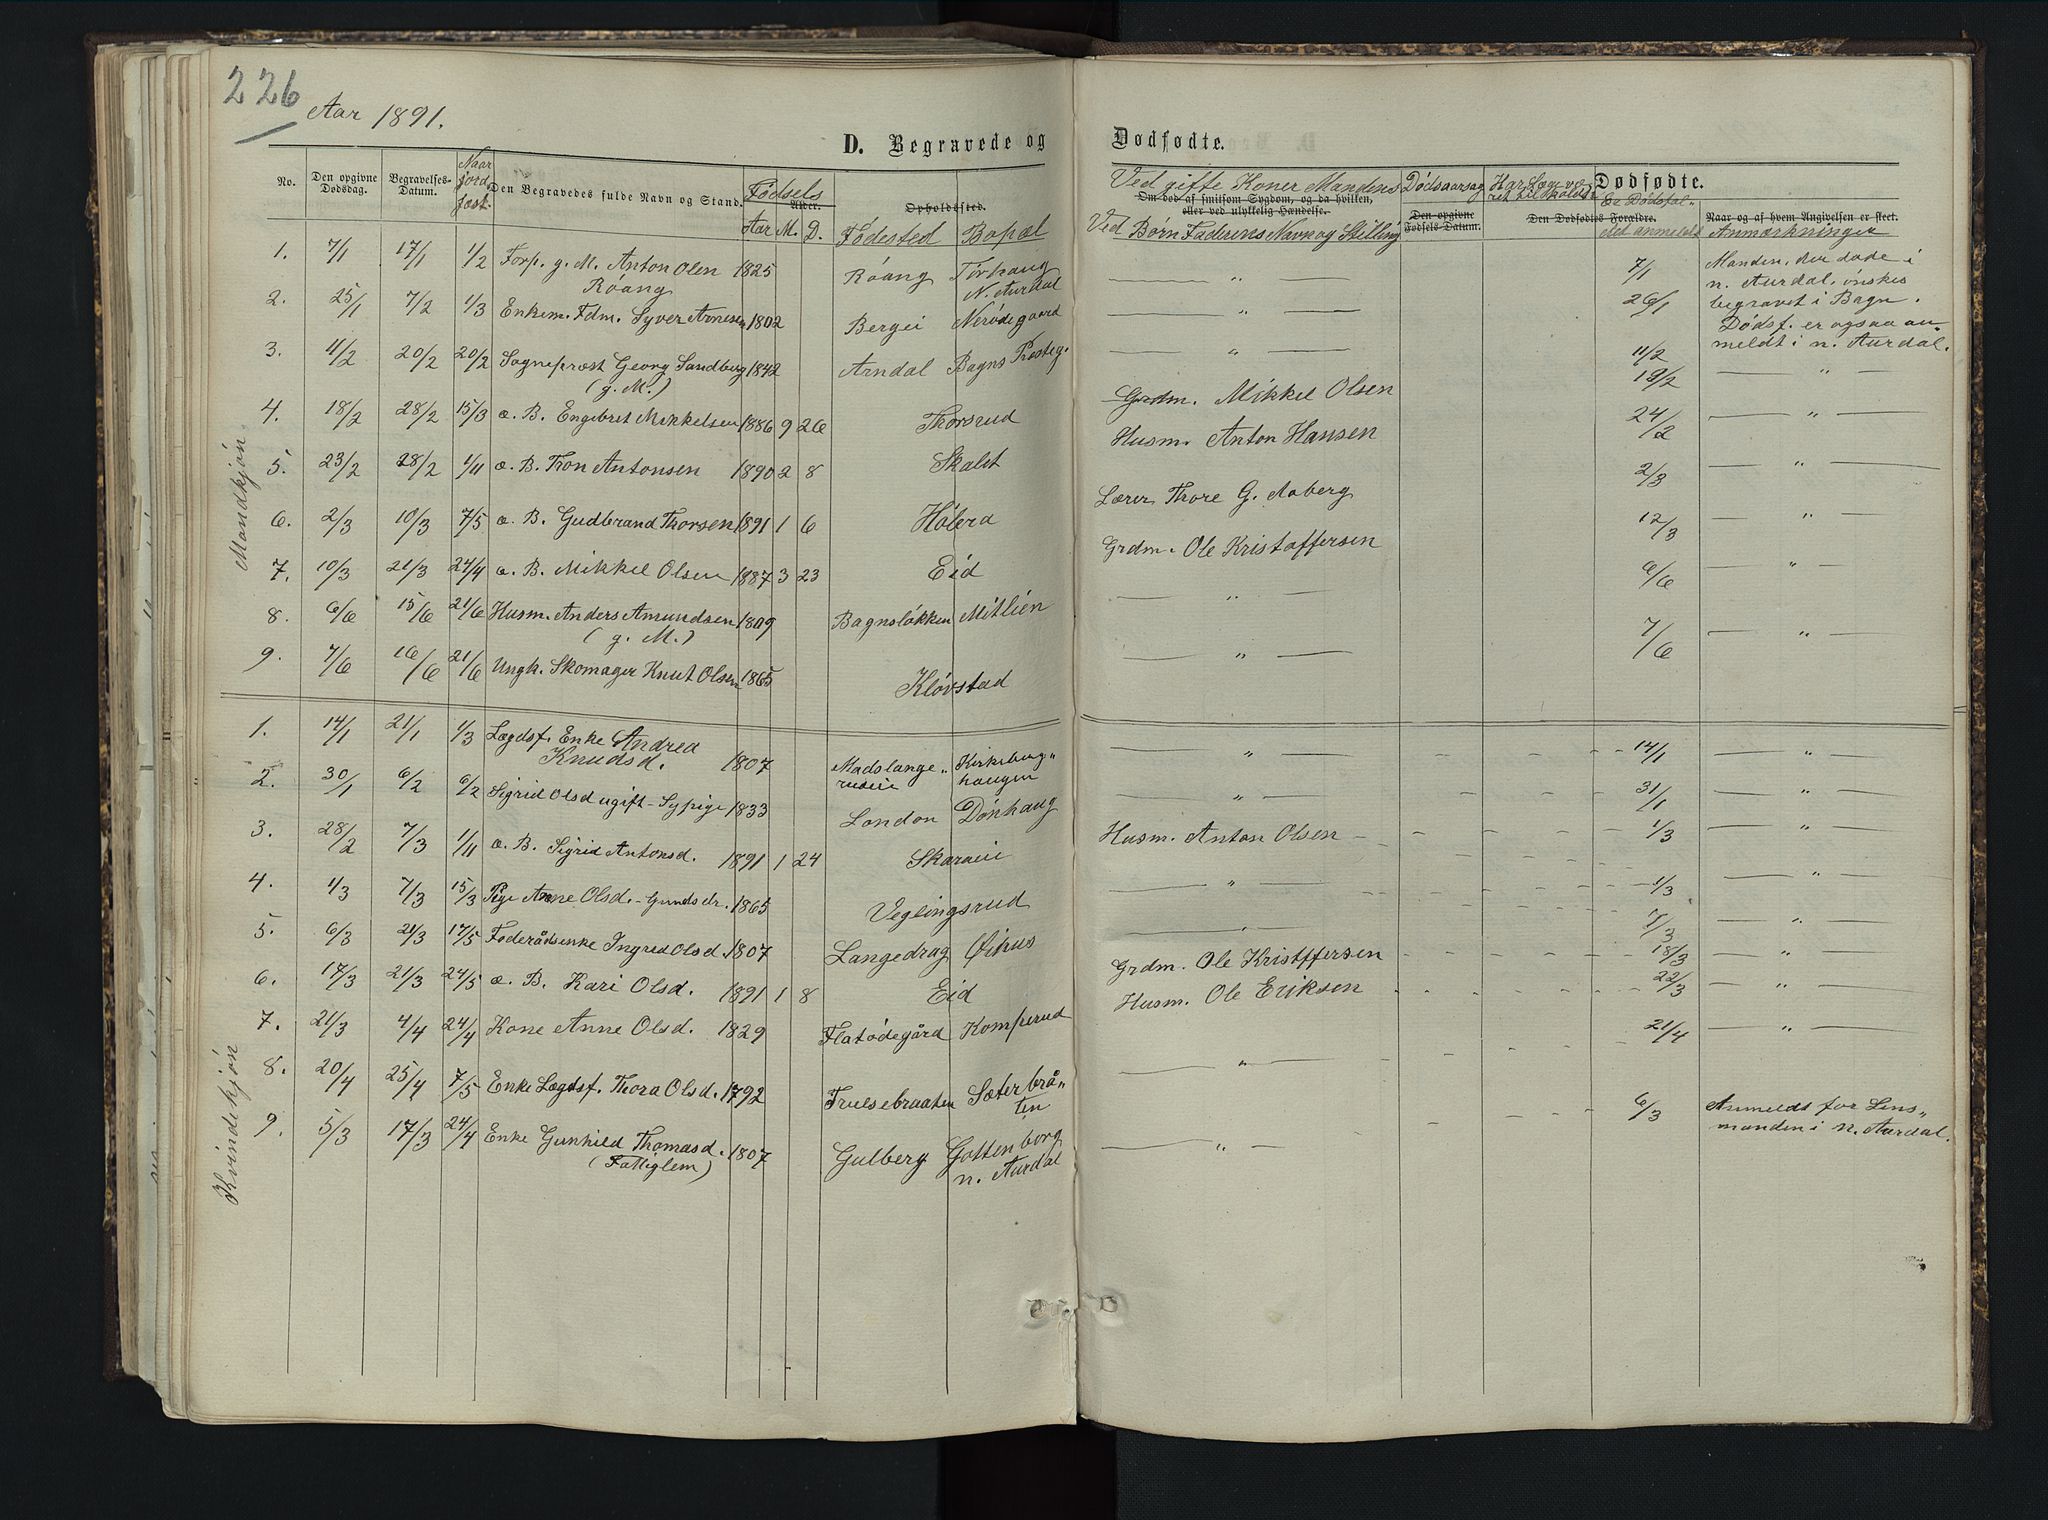 226
Aar 1891.
D. Begravede og
Dødfødte.
No. Den opgivne Dødsdag. Begravelses-Datum. Naar jordfæst. Den Begravedes fulde Navn og Stand. Fødsels Alder. Aar M. D. Opholdssted. Fødested Bopæl
Ved gifte Koner Mandens Dødsaarsag Har Læge været tilkaldt Dødfødte. Er Dødsfal-
Om død af smitsom Sygdom, og da hvilken, eller ved ulykkelig Hændelse. Den opgivne Fødsels-Datum. Den Dødfødtes Forældre. Naar og af hvem Angivelsen er skeet.
Ved Børn Faderens Navn og Stilling let anmeldt Anmærkninger
Mandkjøn
1. 7/1 17/1 1/2 Forp. g. M. Anton Olen 1825 Róang Tórhaug 7/1 Manden, der døde i
Róang N. Aurdal n. Aurdal, ønskes
2. 25/1 7/2 1/3 Enkem. Fdm. Syver Arnesen 1802 Bergei Nerödegaard " 26/1 begravet i Bagn.
Dødsf. er ogsaa an-
meldt i n. Aurdal.
3. 4/2 20/2 20/2 Sogneprest Georg Sandberg 1842 Arndal Bagns Presteg. " 11/2
(g. M.)
4. 18/2 28/2 15/3 æ. B. Engebret Mikkelsen 1886 9 26 Thorsrud Grdm. Mikkel Olsen 19/2 "
5. 23/2 28/2 1/11 æ. B. Tron Antonsen 1890 2 8 Skalst Husm. Anton Hansen 24/2 "
6. 2/3 10/3 7/5 æ. B. Gudbrand Thorsen 1891 1 6 Hóléra Lærer Thore G. Aaberg 2/3 "
7. 10/3 21/3 24/4 æ. B. Mikkel Olsen 1887 3 23 Eid Grdm. Ole Kristoffersen 12/3 "
8. 6/6 15/6 21/6 Husm. Anders Amundsen 1809 Bagnslókken Mitlien " 6/6 "
(g. M.)
9. 7/6 16/6 21/6 Ungk. Skomager Knut Olsen 1865 Klóvstad " 7/6 "
Kvindekjón
1. 14/1 21/1 1/3 Lægdsf. Enke Andrea 1807 Madslange- Kirkeberg- " 14/1 "
Knudsd. rudeie haugen
2. 30/1 6/2 6/2 Sigrid Olsd ugift - Sypige 1833 London Dónhaug " 31/1 "
3. 28/2 7/3 1/11 æ. B. Sigrid Antonsd. 1891 1 24 Skaraeie Husm. Anton Olsen 1/3 "
4. 1/3 7/3 15/3 Pige Anne Olsd. - Gunds dr. 1865 Veglingsrud " 1/3 "
5. 6/3 21/3 17/5 Føderådsenke Ingred Olsd. 1807 Langedrag Øihus " 7/3 "
6. 17/3 21/3 24/5 æ. B. Kari Olsd. 1891 1 8 Eid Grdm. Ole Kristffersen 18/3 "
7. 21/3 4/4 24/4 Kone Anne Olsd. 1829 Flatödegård Komperud Husm. Ole Eriksen 22/3 "
8. 20/4 25/4 7/5 Enke Lægdsf. Thora Olsd. 1792 Trulsebraaten Sæterbrå- " 21/4 "
ten
9. 5/3 17/3 24/4 Enke Gunhild Thomasd. 1807 Gulberg Gottenborg " 6/3 Anmeldt for Lens-
(Fattiglem) n. Aurdal manden i n. Aurdal.